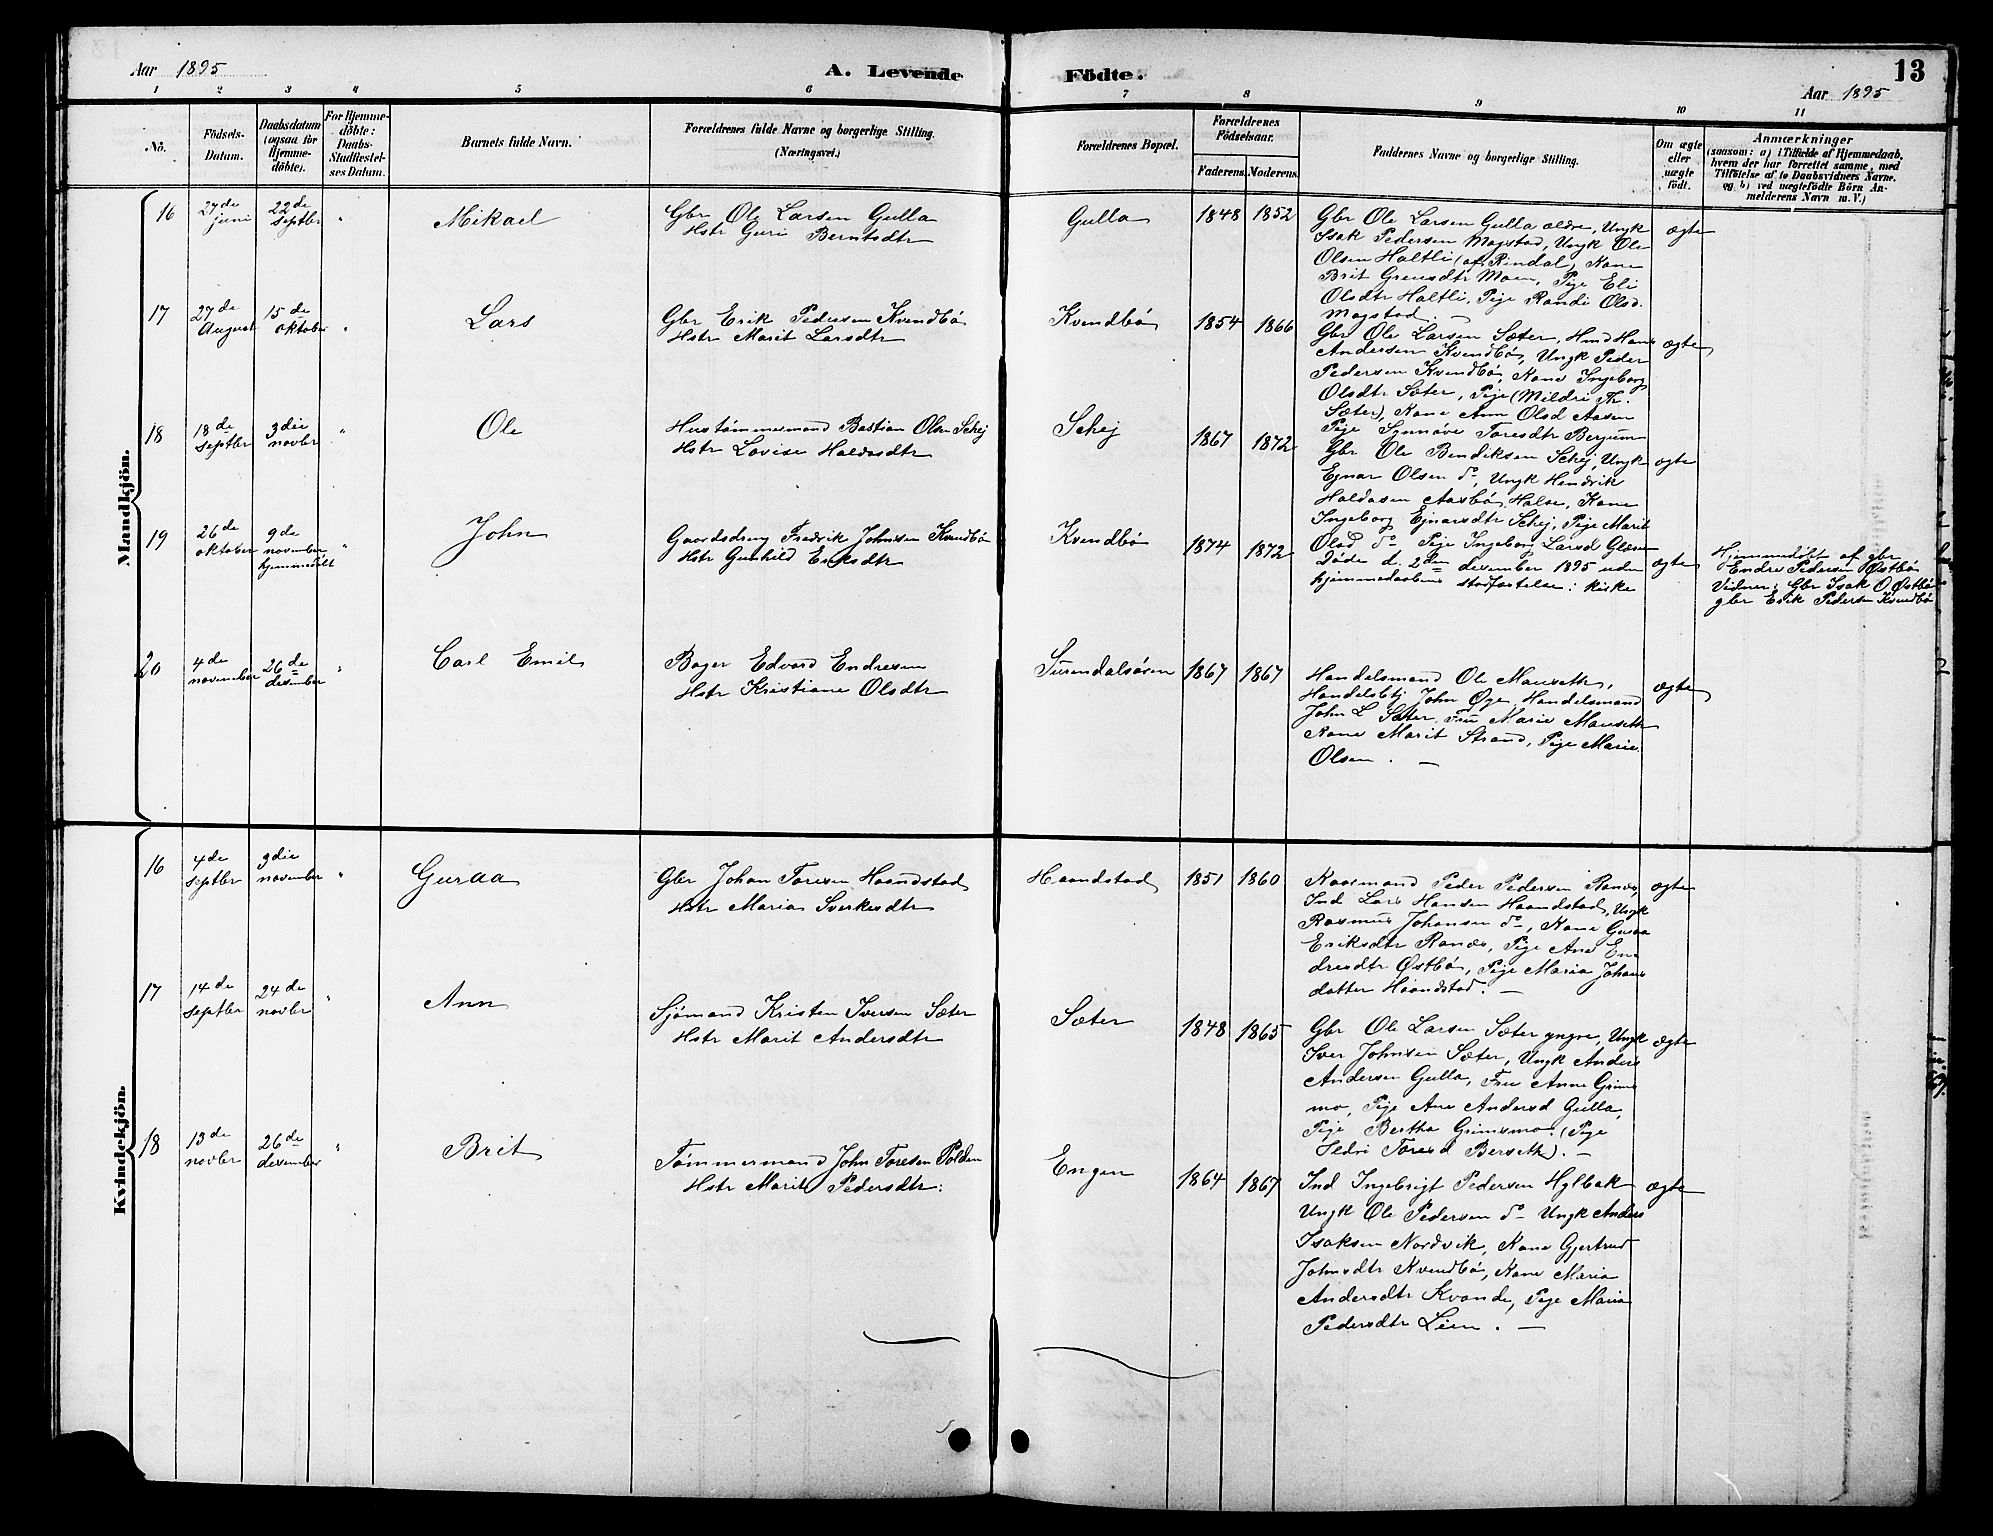 Aar 1895
A. Levende
Födte.
13
Aar 1895
1 2 3 4 5 6 7 8 9 10 11
No.
Födsels-
Datum.
Daabsdatum
(ogsaa for
Hjemme-
döbte).
For Hjemme-
döbte:
Daabs-
Stadfæstel-
ses Datum.
Barnets fulde Navn.
Forældrenes fulde Navne og borgerlige Stilling.
(Næringsvei.)
Forældrenes Bopæl.
Forældrenes
Födselsaar.
Faderens. Moderens.
Faddernes Navne og borgerlige Stilling.
Om ægte
eller
uægte
födt.
Anmærkninger
(saasom: a) i Tilfælde af Hjemmedaab,
hvem der har forrettet samme, med
Tilföielse af to Daabsvidners Navne,
og b) ved uægtefödte Börn An-
melderens Navn m. V.)
Mandkjön.
16
27de
juni
22de
septbr
"
Mikael
Gbr Ole Larsen Gulla
Hstr Guri Berntsdtr
Gulla
1848 1852
Gbr Ole Larsen Gulla ældre, Ungk
Isak Pedersen Mogstad, Ungk Ole
Olsen Holtli (af Rindal), Kone
Brit Moen, Pige Eli
Olsdtr Holtli, Pige Randi Olsd.
Mogstad. —
ægte
17
27de
August
15de
oktober
"
Lars
Gbr Erik Pedersen Kvendbø
Hstr Marit Larsdtr
Kvendbø
1854 1866
Gbr Ole Larsen Sæter, Hmd Hans
Andersen Kvendbø, Ungk Peder
Pedersen Kvendbø, Kone Ingeborg
Olsdtr Sæter, Pige (Mildri Th.
Sæter), Kone Ann Olsd Aasen
Pige Synnøve Toresdtr Bergum
ægte
18
18de
septbr
3die
novbr
"
Ole
Hustømmermand Bastian Olsen Schej
Hstr Lovise Haldosdtr
Schej
1867 1872
Gbr Ole Bendiksen Schej, Ungk
Ejnar Olsen do, Ungk Hendrik
Haldosen Aasbø, Halse, Kone
Ingeborg Ejnarsdtr Schej, Pige Marit
Olsd do Pige Ingeborg Larsd
ægte
19
26de
oktober
9de
november
hjemmedøbt
"
John
Gaardsdreng Fredrik Johnsen Kvendbø
Hstr Gunhild Eriksdtr
Kvendbø
1874 1872
Døde d. 2den desember 1895 uden
hjemmedaabens stadfæstelse i kirke
ægte
Hjemmedøbt af gbr
Endre Pedersen Østbø
Vidner: Gbr Isak O Østbø
gbr Erik Pedersen Kvendbø
20
4de
november
26de
desember
"
Carl Emil
Bager Edvard Endresen
Hstr Kristiane Olsdtr
Surendalsøren
1867 1867
Handelsmand Ole Mauseth,
Handelsbtj John Øye, Handelsmand
John L Sæter, Fru Marie Mauseth
Kone Marit Strand, Pige Marie
Olsen. —
ægte
Kvindekjön.
16
4de
septbr
3die
november
"
Guraa
Gbr Johan Toresen Haandstad
Hstr Maria Sverkesdtr
Haandstad
1851 1860
Kaarmand Peder Pedersen Ranæs,
Ind Lars Hansen Haandstad, Ungk
Rasmus Johansen do, Kone Guraa
Eriksdtr Ranæs, Pige Ane En
dresdtr Østbø, Pige Maria Johans
datter Haandstad. —
ægte
17
14de
septbr
24de
novbr
"
Ann
Sjømand Kristen Iversen Sæter
Hstr Marit Andersdtr
Sæter
1848 1865
Gbr Ole Larsen Sæter yngre, Ungk
Iver Johnsen Sæter, Ungk Anders
Andersen Gulla, Fru Anne Grims
mo, Pige Ane Andersd Gulla,
Pige Bertha Grimsmo. (Pige
Sedri Toresd Berseth). —
ægte
18
13de
novbr
26de
desember
"
Brit
Tømmermand John Toresen Polden
Hstr Marit Pedersdtr.
Engen
1864 1867
Ind Ingebrigt Pedersen Hylbak
Ungk Ole Pedersen do Ungk Anders
Isaksen Nordvik, Kone Gjertrud
Johnsdtr Kvendbø, Kone Maria
Andersdtr Kvande, Pige Maria
Pedersdtr Lien. —
ægte